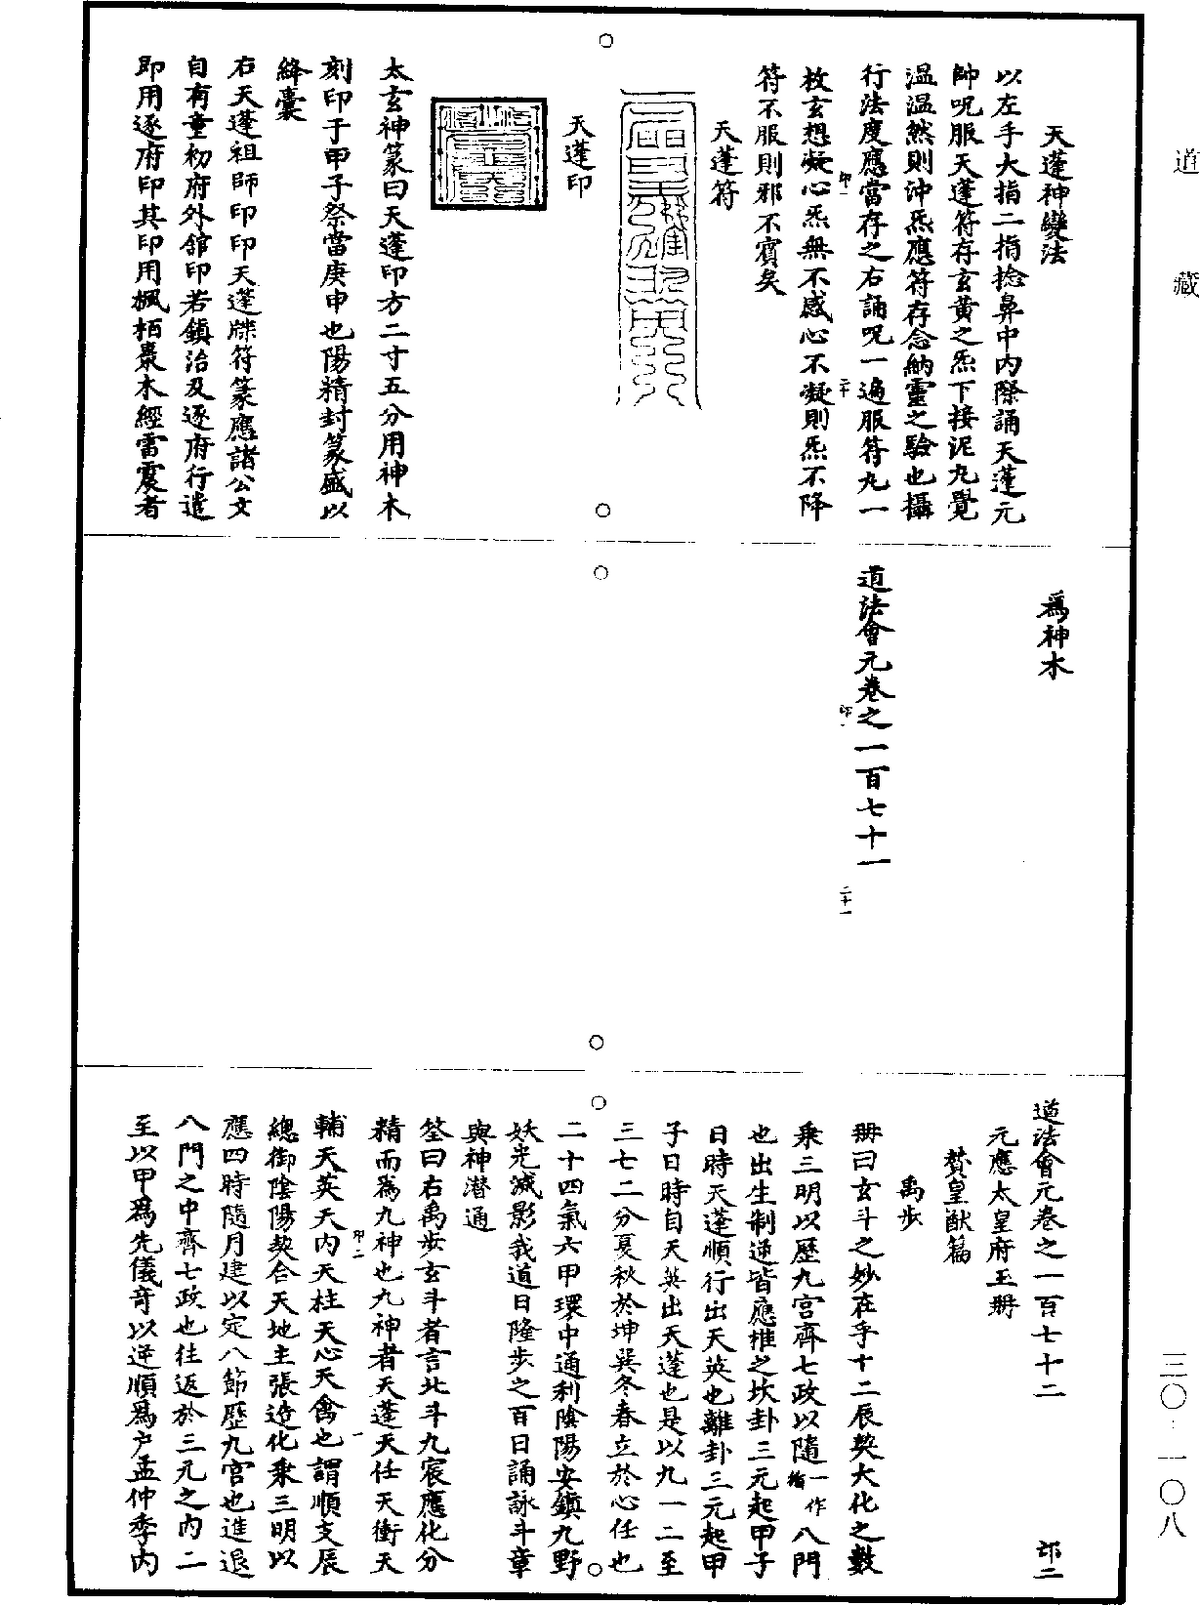 道藏
天蓬神變法
以左手大指二指捻鼻中內際誦天蓬元
帥呪服天蓬符存玄黃之炁下接泥丸覺
溫溫然則沖炁應符存念納靈之驗也攝
行法度應當存之右誦呪一遍服符九一
枚玄想凝心炁無不感心不凝則炁不降
符不服則邪不賓矣
天蓬符
天蓬印
太玄神篆曰天蓬印方二寸五分用神木
刻印于甲子祭當庚申也陽精封篆盛以
絳囊
右天蓬祖師印印天蓬牒符篆應諸公文
自有童初府外舘印若鎮治及逐府行遣
即用逐府印其印用楓栢棗木經雷震者
為神木
道法會元卷之一百七十一
二十一
道法會元卷之一百七十二
元應太皇府玉冊
贊皇猷篇
禹步
冊曰玄斗之妙在乎十二辰契大化之數
乘三明以歷九宮齊七政以隨一作八門
也出生制逆皆應惟之坎卦三元起甲子
日時天蓬順行出天英也離卦三元起甲
子日時自天英出天蓬也是以九一二至
三七二分夏秋於坤巽冬春立於心任也
二十四氣六甲環中通利陰陽安鎮九野
妖光滅影我道日隆步之百日誦詠斗章
與神潛通
筌曰右禹步玄斗者言北斗九宸應化分
精而為九神也九神者天蓬天任天衝天
輔天英天內天柱天心天禽也謂順支辰
總御陰陽契合天地主張造化乘三明以
應四時隨月建以定八節歷九宮也進退
八門之中齊七政也往返於三元之內二
至以甲為先儀奇以逆順為户孟仲季內
三〇‧一〇八